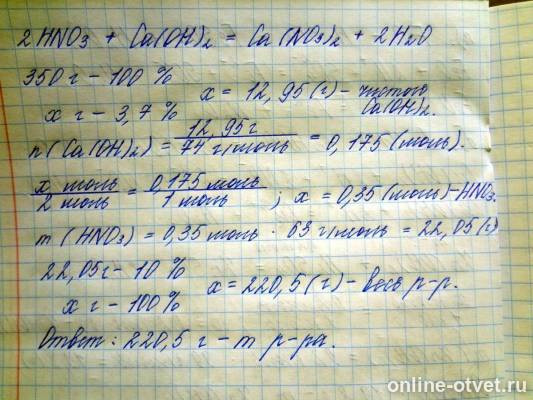 2HNO3 + Ca(OH)2 = Ca(NO3)2 + 2H2O
350 г – 100 %
x г – 3,7 %
x = 12,95 (г) – чистого Ca(OH)2.
n(Ca(OH)2) = 12,95 г / 74 г/моль = 0,175 (моль).
x моль / 2 моль = 0,175 моль / 1 моль ; x = 0,35 (моль) – HNO3.
m (HNO3) = 0,35 моль · 63 г/моль = 22,05 (г)
22,05 г – 10 %
x г – 100 %
x = 220,5 (г) – весь р-р.
Ответ: 220,5 г – m р-ра.
online-otvet.ru